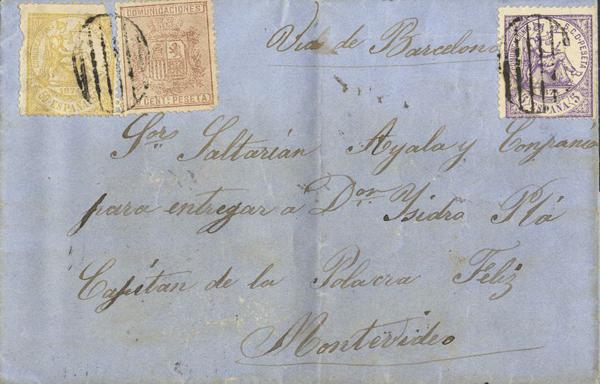 COMUNICACIONES
CENT. PESETA
ESPAÑA
Via de Barcelona
DE PESETA
ESPAÑA
Sors Saltarián Ayala y Conpania
para entregar a Don Ysidro Plá
Capitan de la Polacra Feliz
Montevideo